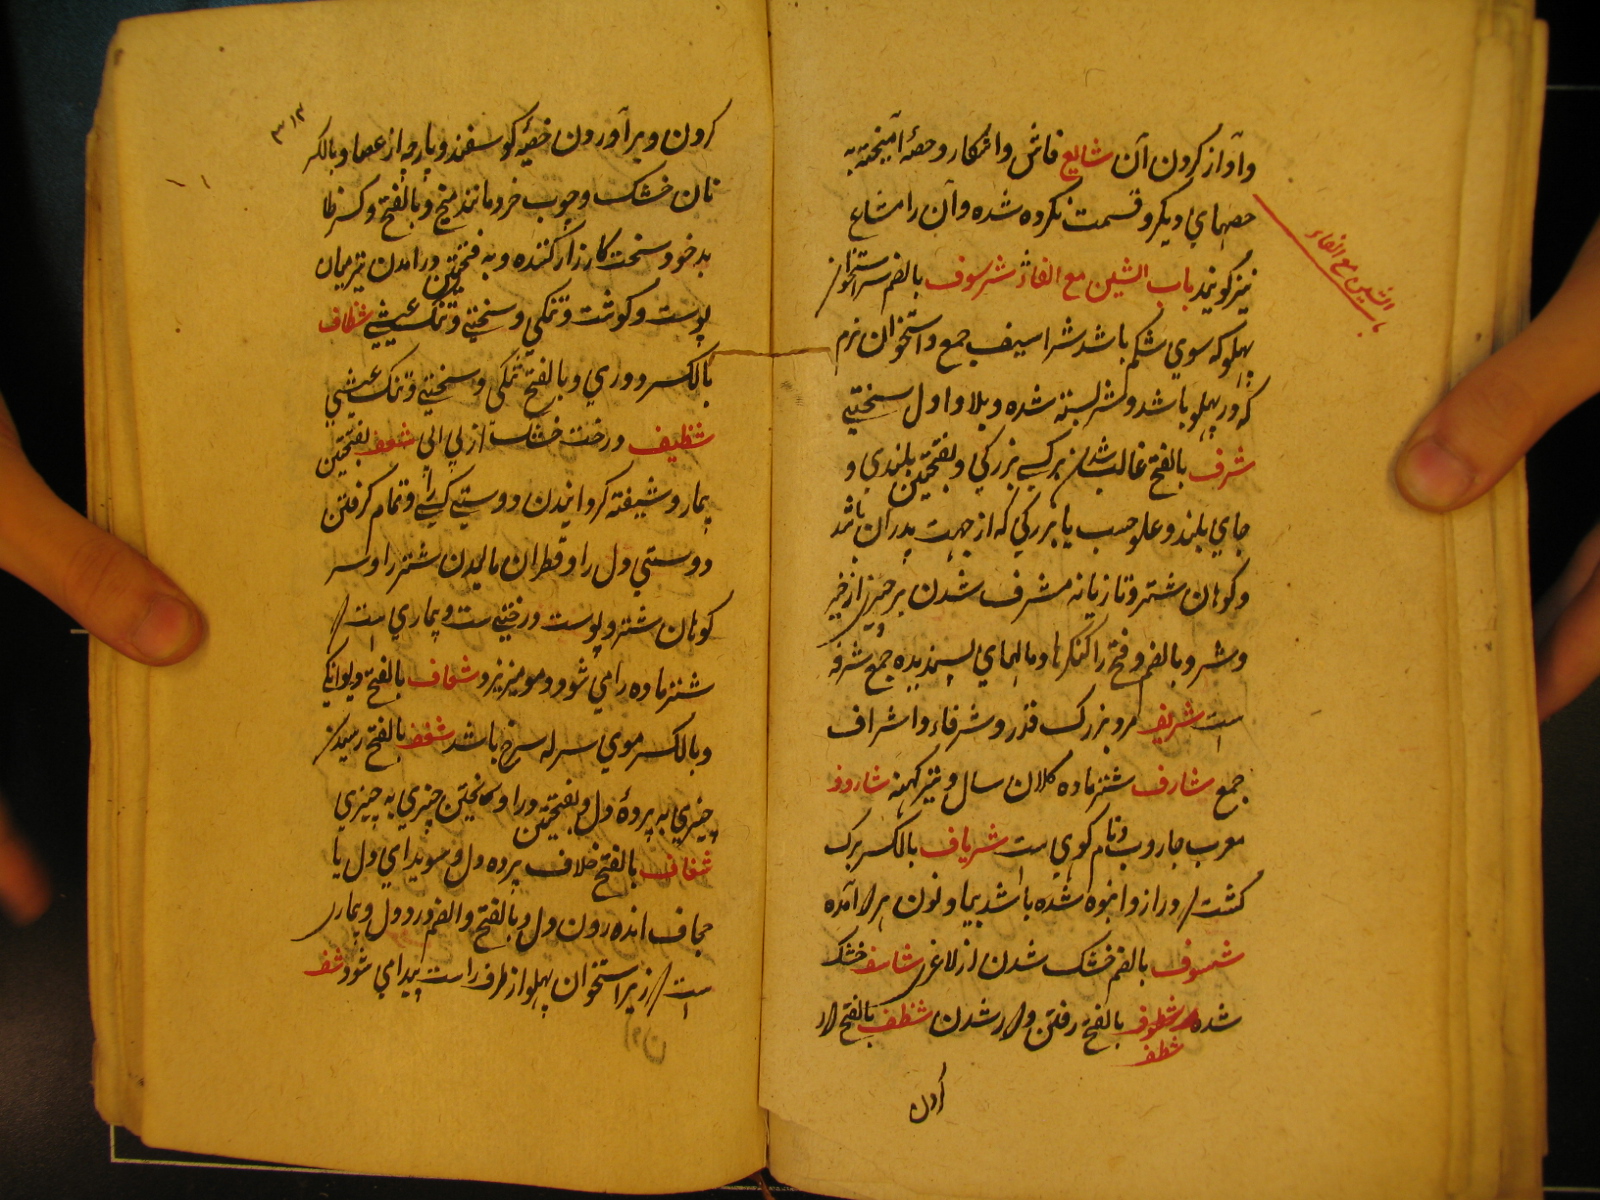 وآواز کردن آن شایع فاش و اشکار و حصهٔ آمیخته به
حصهای دیکر و قسمت نکرده شده و آن را مشاع
نیز کویند باب الشین مع الفاء شرسوف بالضم سر استخوان
پهلو که سوی شکم باشد شراسیف جمع و استخوان نرم
که در پهلو باشد و شتر بسته شده و بلا و اول سختی
شرف بالفتح غالب شدن بر کسے بزرکی و بفتحتین بلندی و
جای بلند و علو حسب یا بزرکی که از جهت پدران باشد
و کوهان شتر و تازیانه مشرف شدن بر چیزی از خیر
و شر و بالضم و فتح را کنکرها و مالهای پسندیده جمع شرفه
است شریف مرد بزرک قدر و شرفاء و اشراف
جمع شارف شتر ماده کلان سال و تیر کهنه شاروف
معرب جاروب و نام کوهی ست شریاف بالکسر برک
کشت دراز و انبوه شده باشد بیا و نون هر دو آمده
شسوف بالضم خشک شدن از لاغری شاسف خشک
شده شطوف بالفتح رفتن و دور شدن شظف بالفتح
شطف
باب الشین مع الفاء
کردن و برآوردن خصیهٔ کوسفند و پارچه از عصا و بالکسر
نان خشک و چوب خرد مانند میخ و بالفتح و کسر ظا
بد خو و سخت کارزار کننده و به فتحتین در امدن تیر میان
پوست و کوشت و تنکی و سختی و تنک عیشی شظاف
بالکسر دوری و بالفتح تنکی و سختی و تنک عیشی
شظیف درخت خشک از بی ابی شعف بفتحتین
بیمار و شیفته کردانیدن دوستی کسی را و تمام کرفتن
دوستی دل را و قطران مالیدن شتر را و سر
کوهان شتر و پوست درختی ست و بیماری است
شتر ماده را می شود و مو میریزد شعاف بالفتح دیوانکی
و بالکسر موی سر که سرخ باشد شغف بالفتح رسیدن
چیزی به پردهٔ دل و بفتحتین در اویختن چیزی به چیزی
شغاف بالفتح غلاف پرده دل و سویدای دل یا
حجاف اندرون دل و بالفتح و الضم درد دل و بیماری
است زیر استخوان پهلو از طرف راست پیدا می شود شف